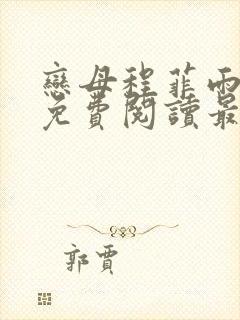 戀母程菲雨
免費閱讀最
郭賈